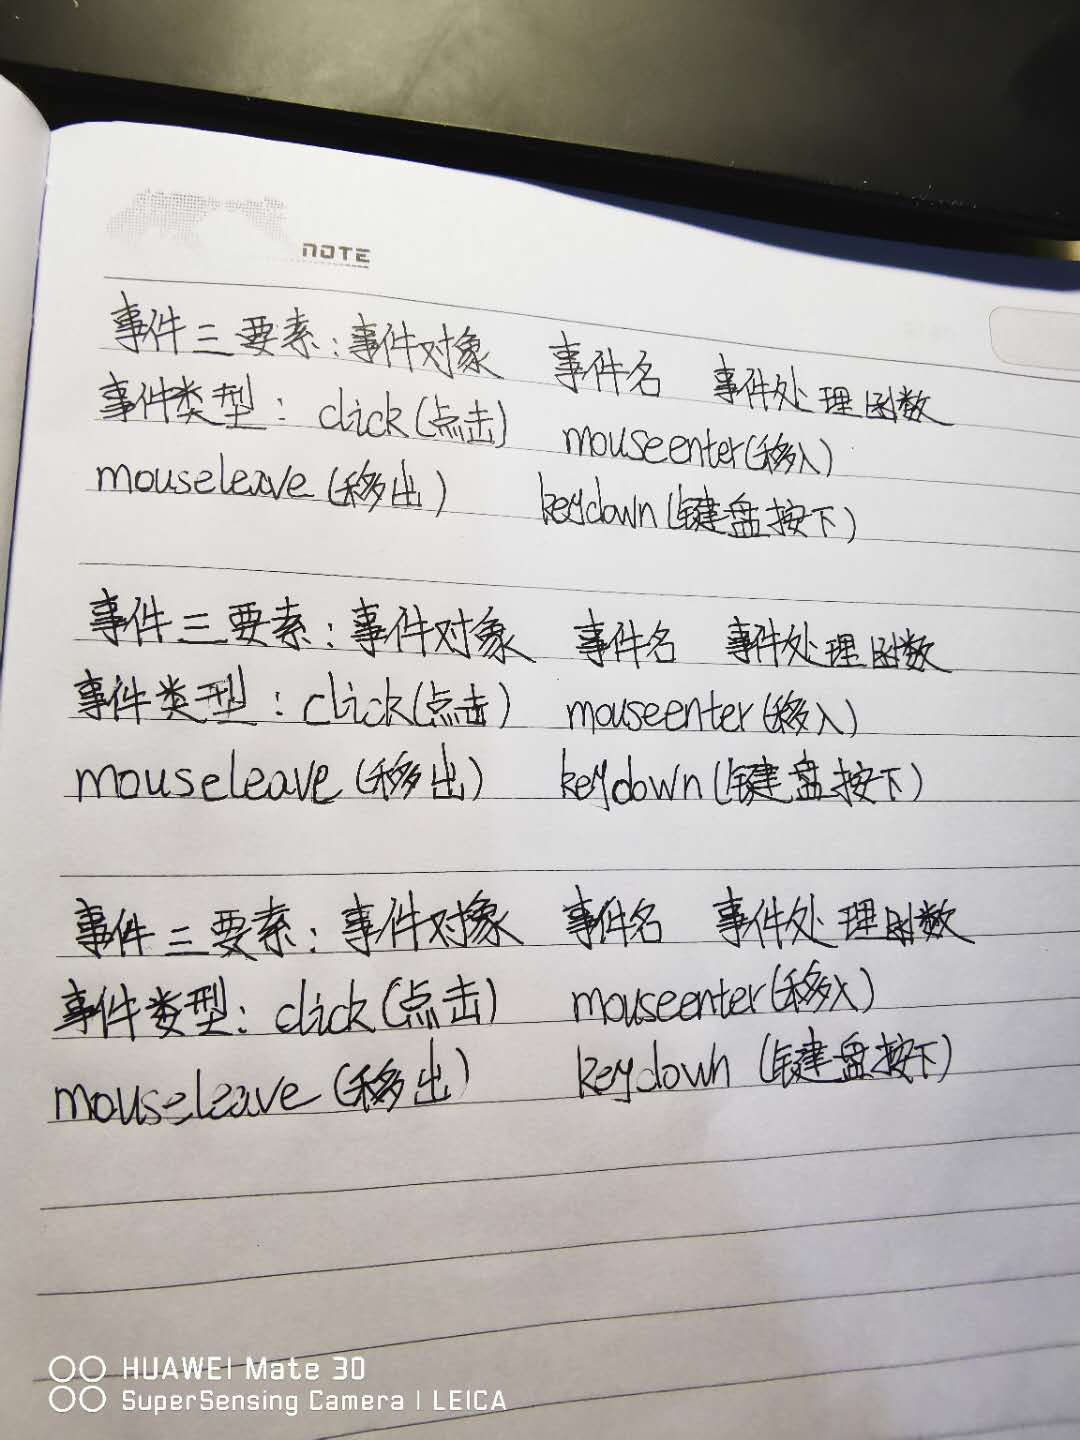 NOTE
事件三要素：事件对象 事件名 事件处理函数
事件类型：click(点击) mouseenter(移入)
mouseleave(移出) keydown(键盘按下)
事件三要素：事件对象 事件名 事件处理函数
事件类型：click(点击) mouseenter(移入)
mouseleave(移出) keydown(键盘按下)
事件三要素：事件对象 事件名 事件处理函数
事件类型：click(点击) mouseenter(移入)
mouseleave(移出) keydown(键盘按下)
HUAWEI Mate 30
SuperSensing Camera | LEICA